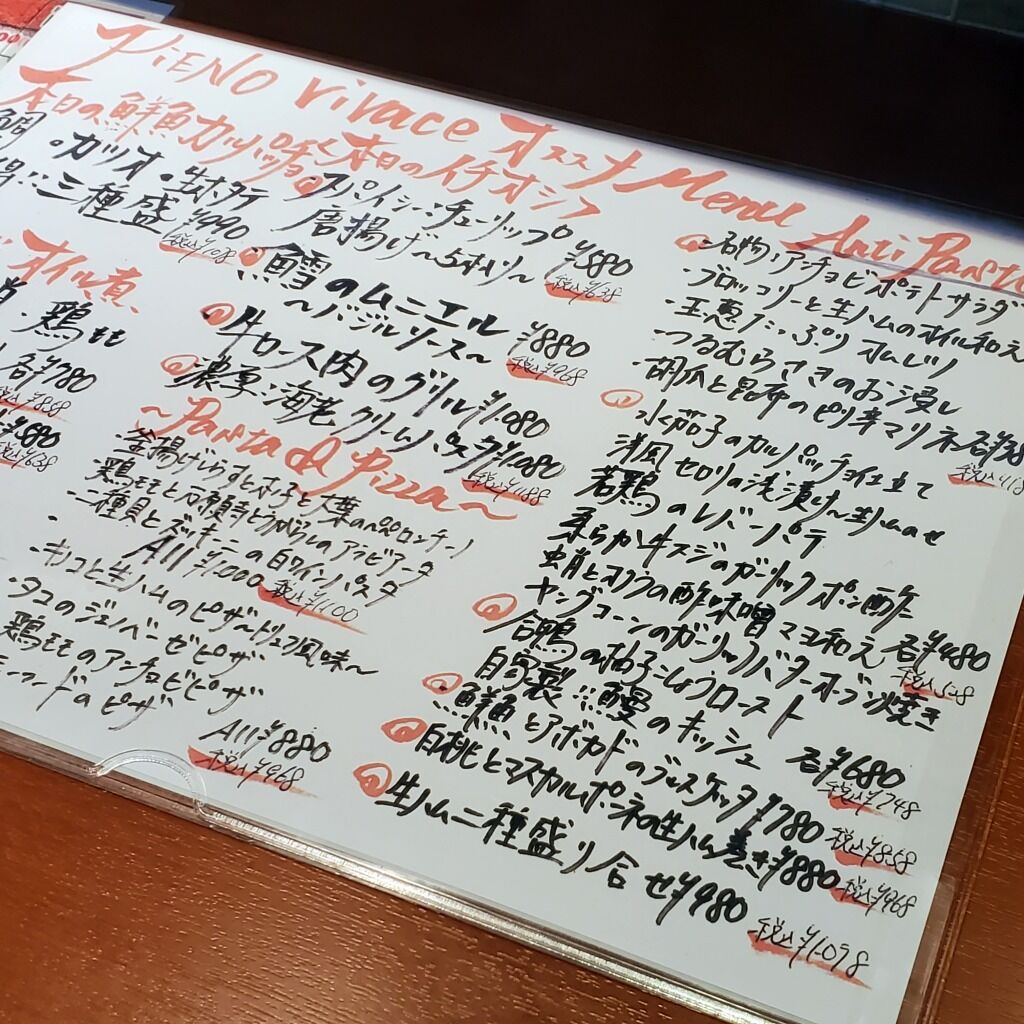 PiENO vivace オススメ Menu
本日の鮮魚カルパッチョ
鯛・カツオ・生ホタテ
三種盛 ¥990
税込¥1,089
オイル煮
・鶏モモ
各¥780
税込¥858
税込¥638
本日のイチオシ
スパイシーチューリップ
唐揚げ~5本入り~ ¥580
税込¥638
鱈のムニエル
~バジルソース~ ¥880
税込¥968
牛ロース肉のグリル ¥1,080
濃厚!海老クリームパスタ ¥1,080
税込¥1,188
~Pasta & Pizza~
・釜揚げしらすときのこと大葉のペペロンチーノ
鶏モモと万願寺とうがらしのアラビアータ
・二種貝とズッキーニの白ワインパスタ
All ¥1,000
税込¥1,100
・キノコと生ハムのピザ~トリュフ風味~
・タコのジェノベーゼピザ
鶏モモのアンチョビピザ
All ¥880
税込¥968
Anti Pasto
名物!アンチョビポテトサラダ
・ブロッコリーと生ハムのオイル和え
・つるむらさきのお浸し
・胡瓜と昆布のピリ辛マリネ 各¥380
税込¥418
水茄子のカルパッチョ仕立て
洋風セロリの浅漬け~生ハムのせ
若鶏のレバーパテ
柔らか牛スジのガーリックポン酢
蛸とオクラの酢味噌マヨ和え 各¥480
税込¥528
ヤングコーンのガーリックバターオーブン焼き
合鴨の柚子こしょうロースト
自家製!!鰻のキッシュ 各¥680
税込¥748
鮮魚とアボカドのブルスケッタ ¥780
税込¥858
白桃とマスカルポーネの生ハム巻き ¥880
税込¥968
生ハム二種盛り合せ ¥980
税込¥1,078